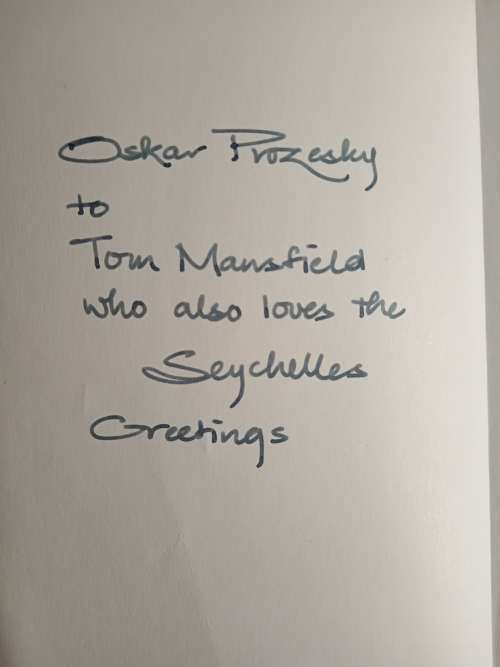 Oskar Prozesky
to
Tom Mansfield
who also loves the
Seychelles
Greetings